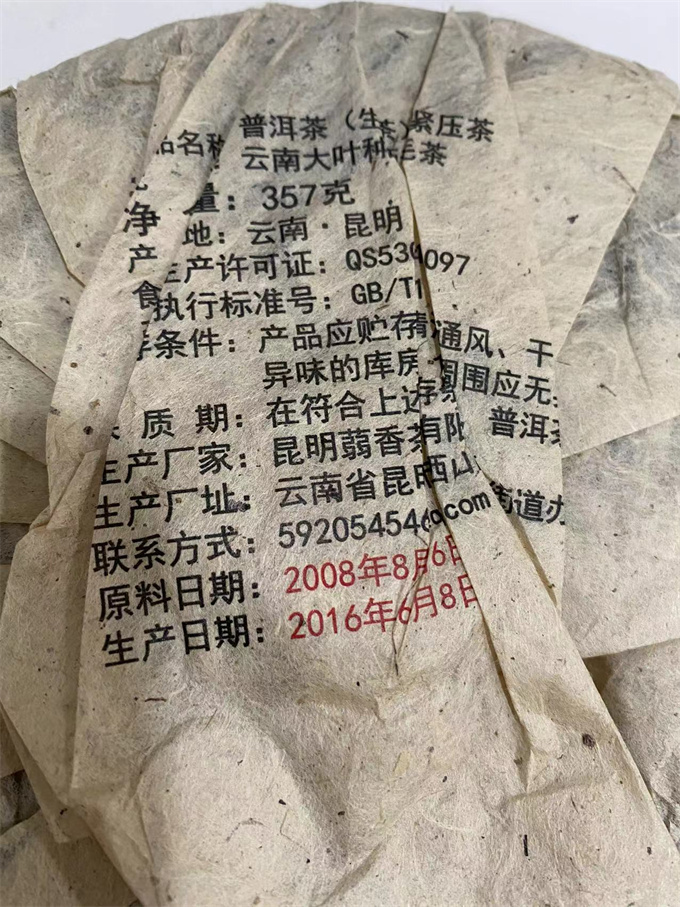 品名称 普洱茶（生茶）紧压茶
云南大叶种 毛茶
净 量：357克
产 地：云南·昆明
食 生产许可证：QS530 097
执行标准号：GB/T
存条件：产品应贮存 通风、干
异味的库房 周围应无
质 期：在符合上述
生产厂家：昆明蒻香茶 有限 普洱茶
生产厂址：云南省昆明 西山 街道办
联系方式：592054546 qcom
原料日期：2008年8月6日
生产日期：2016年6月8日